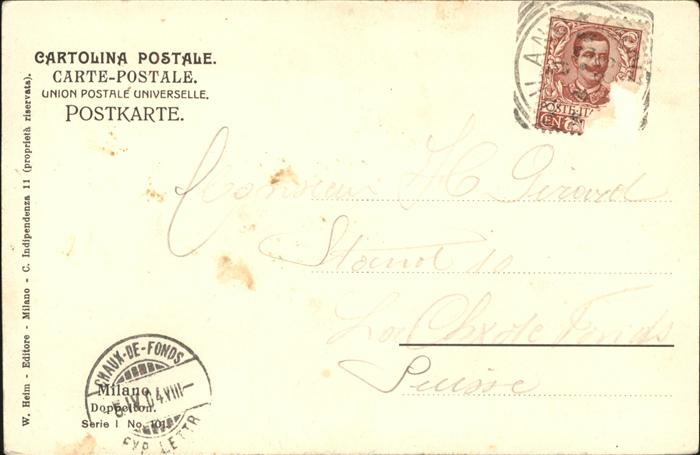 CARTOLINA POSTALE.
CARTE-POSTALE.
UNION POSTALE UNIVERSELLE.
POSTKARTE.
W. Heim - Editore - Milano - C. Indipendenza 11 (proprietà riservata).
MILAN
POSTE IT
CENT
Monsieur H Girard
Stand 10
La Chx de Fonds
Suisse
CHAUX-DE-FONDS
5.IV.04.VIII-
EXP. LETTR
Milano
Doppelton.
Serie I No. 1013